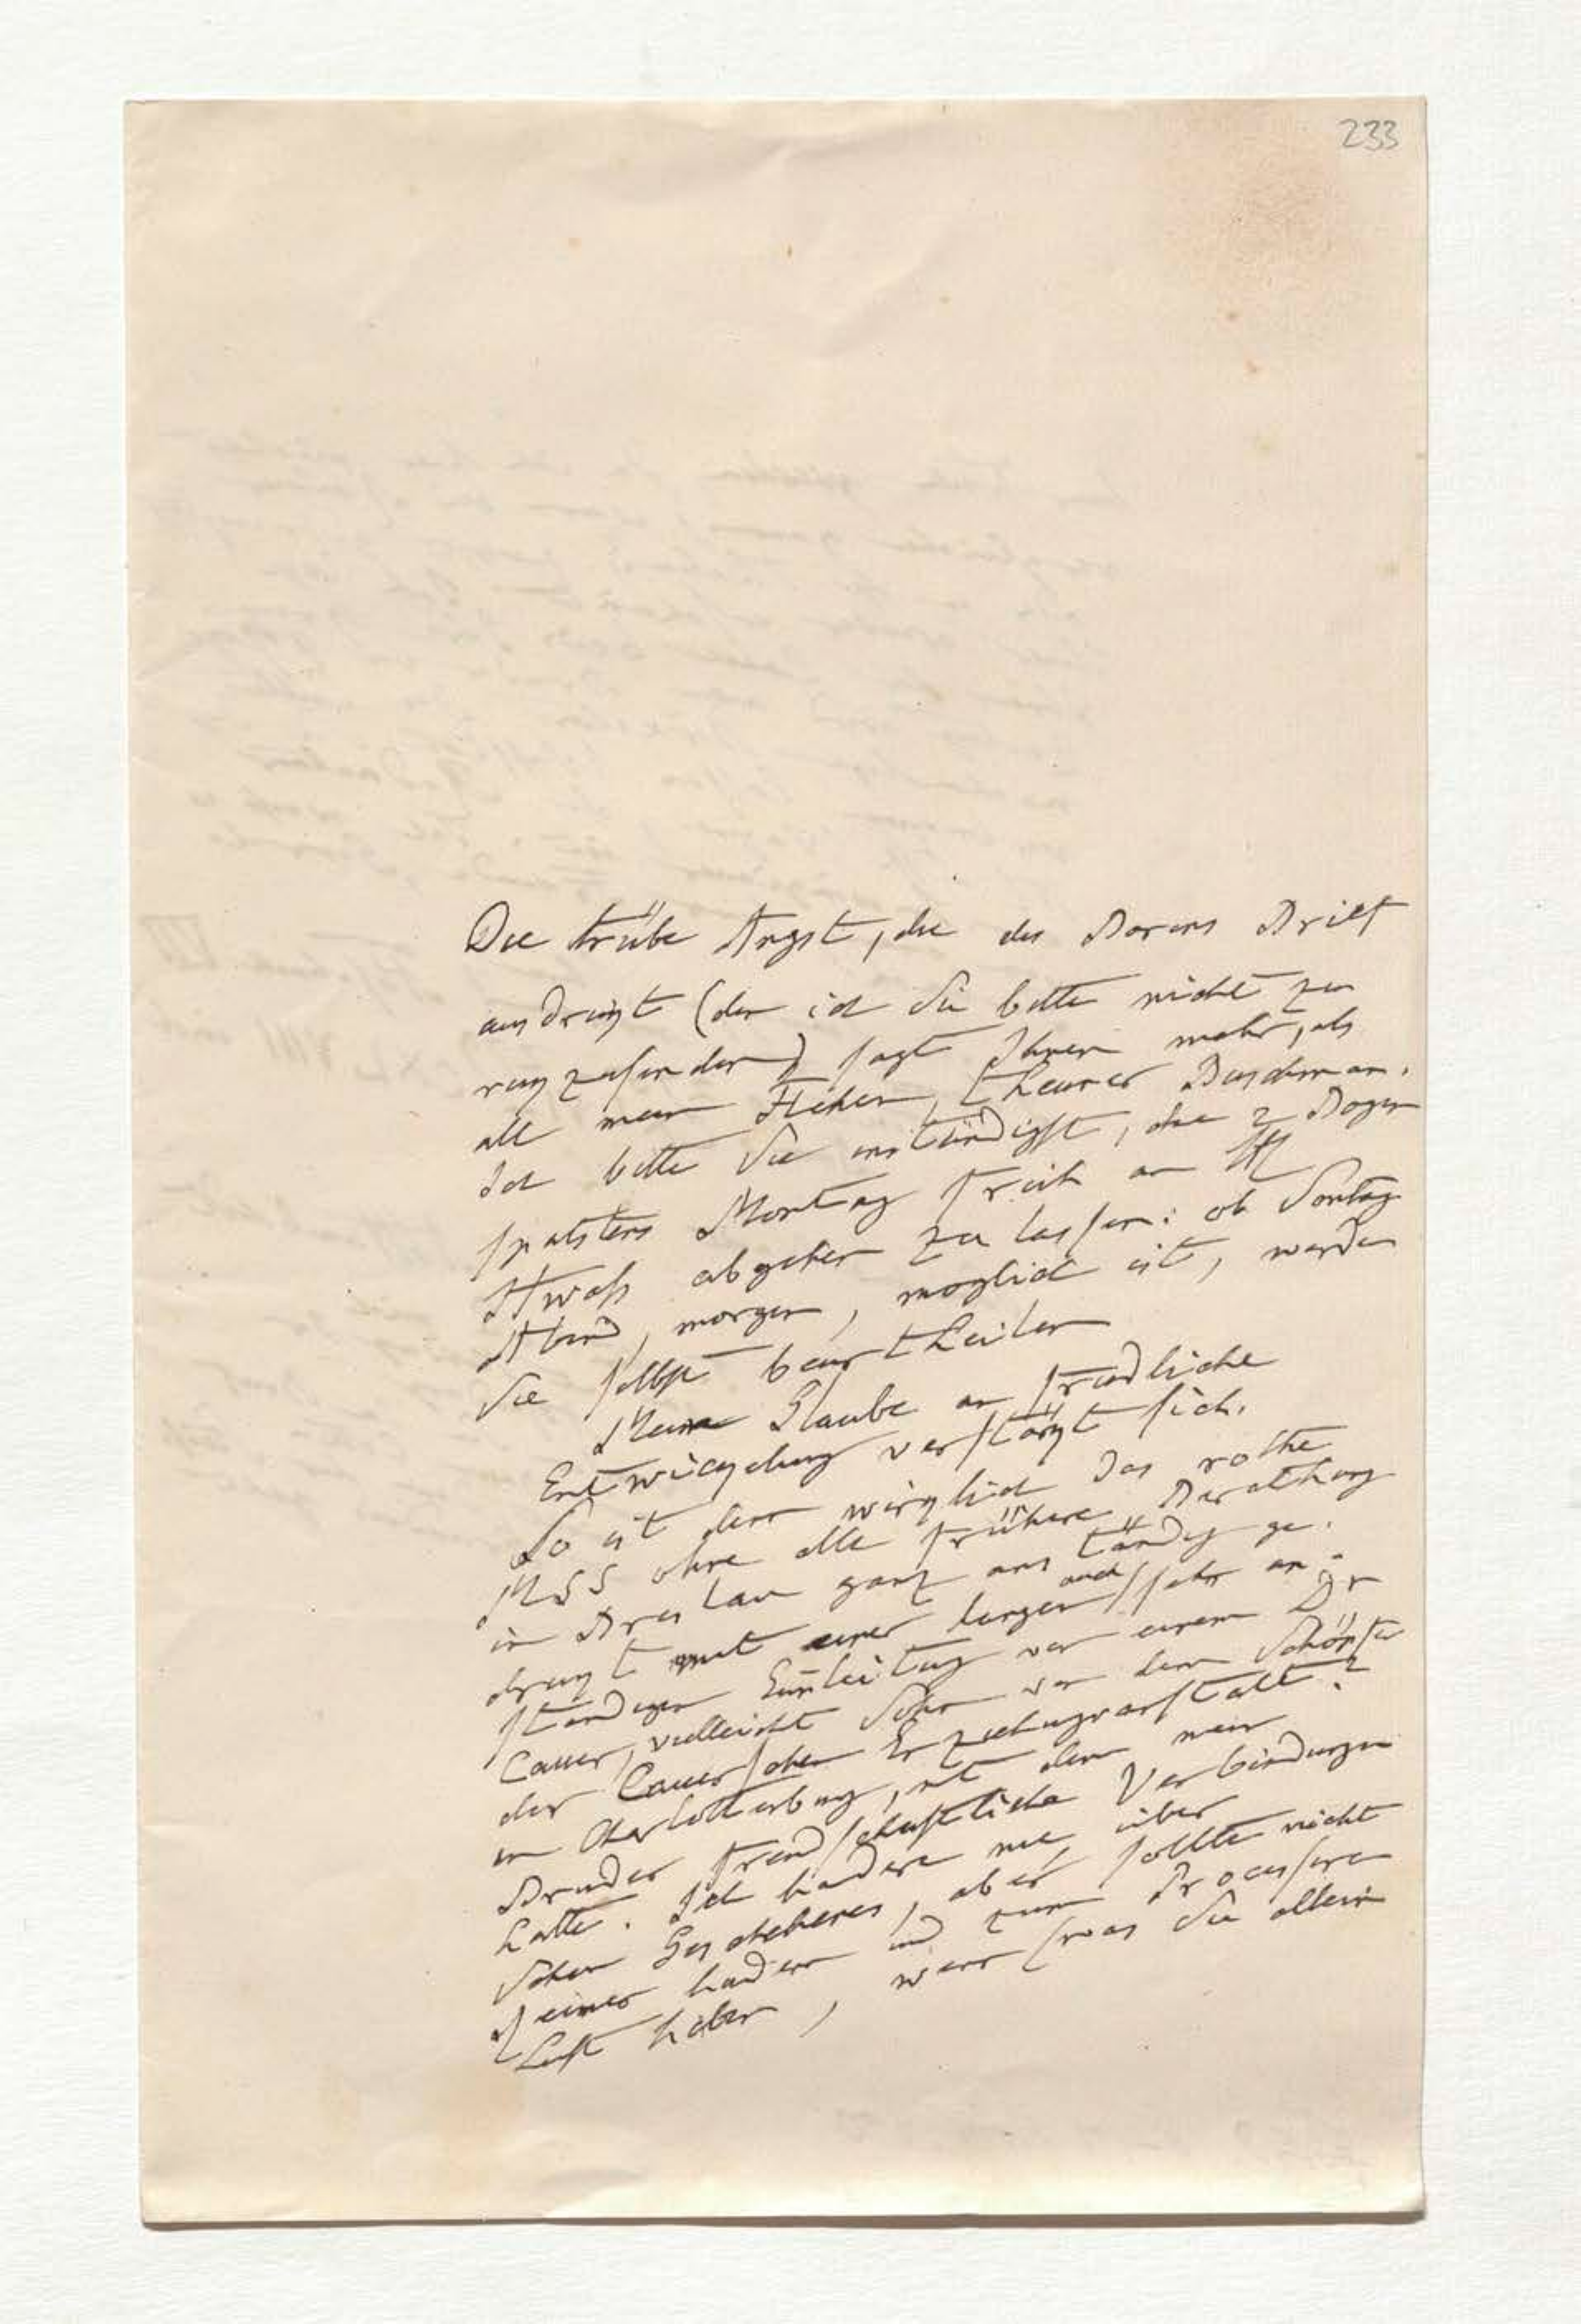 233
Die trübe Angst, die des Barons Brief
ausdrückt (den ich Sie bitte nicht zu
rückzusenden) sagt Ihnen mehr, als
all mein Flehen, theurer Buschman.
Ich bitte Sie inständigst, die 2 Bogen
spatstens Montag früh an
abgehen zu lassen: ob Sontag
Abend, morgen, moglich ist, werden
Sie selbst beurtheilen
Mein Glaube an friedliche
Entwickelung verstärkt sich.
So ist denn wirklich das rothe
MSS ohne alle frühere Berathung
in Breslau ganz anständig ge-
drukt mit einer langen auch sehr an-
ständigen Einleitung von einem Dr
Cauer, vielleicht Sohn von dem Schöpfer
der Cauerschen Erziehungsanstalt
in Charlottenburg, mit dem mein
Bruder freundschaftliche Verbindungen
hatte. Ich hadere nie über
schon Geschehenes, aber sollte nicht
Reimer hadern und zum Processiren
Lust haben, wenn (was Sie allein